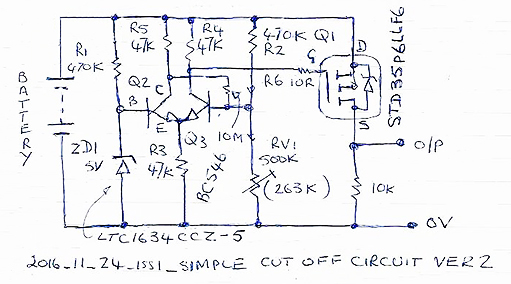 R5
47K
R4
47K
470K
R2
Q1
R1
470K
Q2
B
C
E
G
D
S
R6 10R
STD35P6LLF6
BATTERY
ZD1
5V
R3
47K
Q3
BC546
10M
RV1
500K
(263K)
10K
O/P
0V
LTC1634CCZ-5
2016_11_24_ISS1_SIMPLE CUT OFF CIRCUIT VER 2